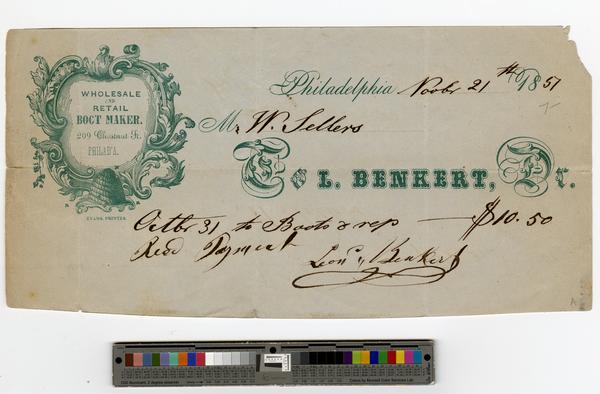 WHOLESALE
AND
RETAIL
BOOT MAKER.
209 Chestnut St.
PHILAD'A.
EVANS, PRINTER.
Philadelphia Novbr 21th 1851
Mr W. Sellers
To L. BENKERT, Dr.
Octbr 31 to Boots & rep — $10.50
Recd Payment
Leond Benkert